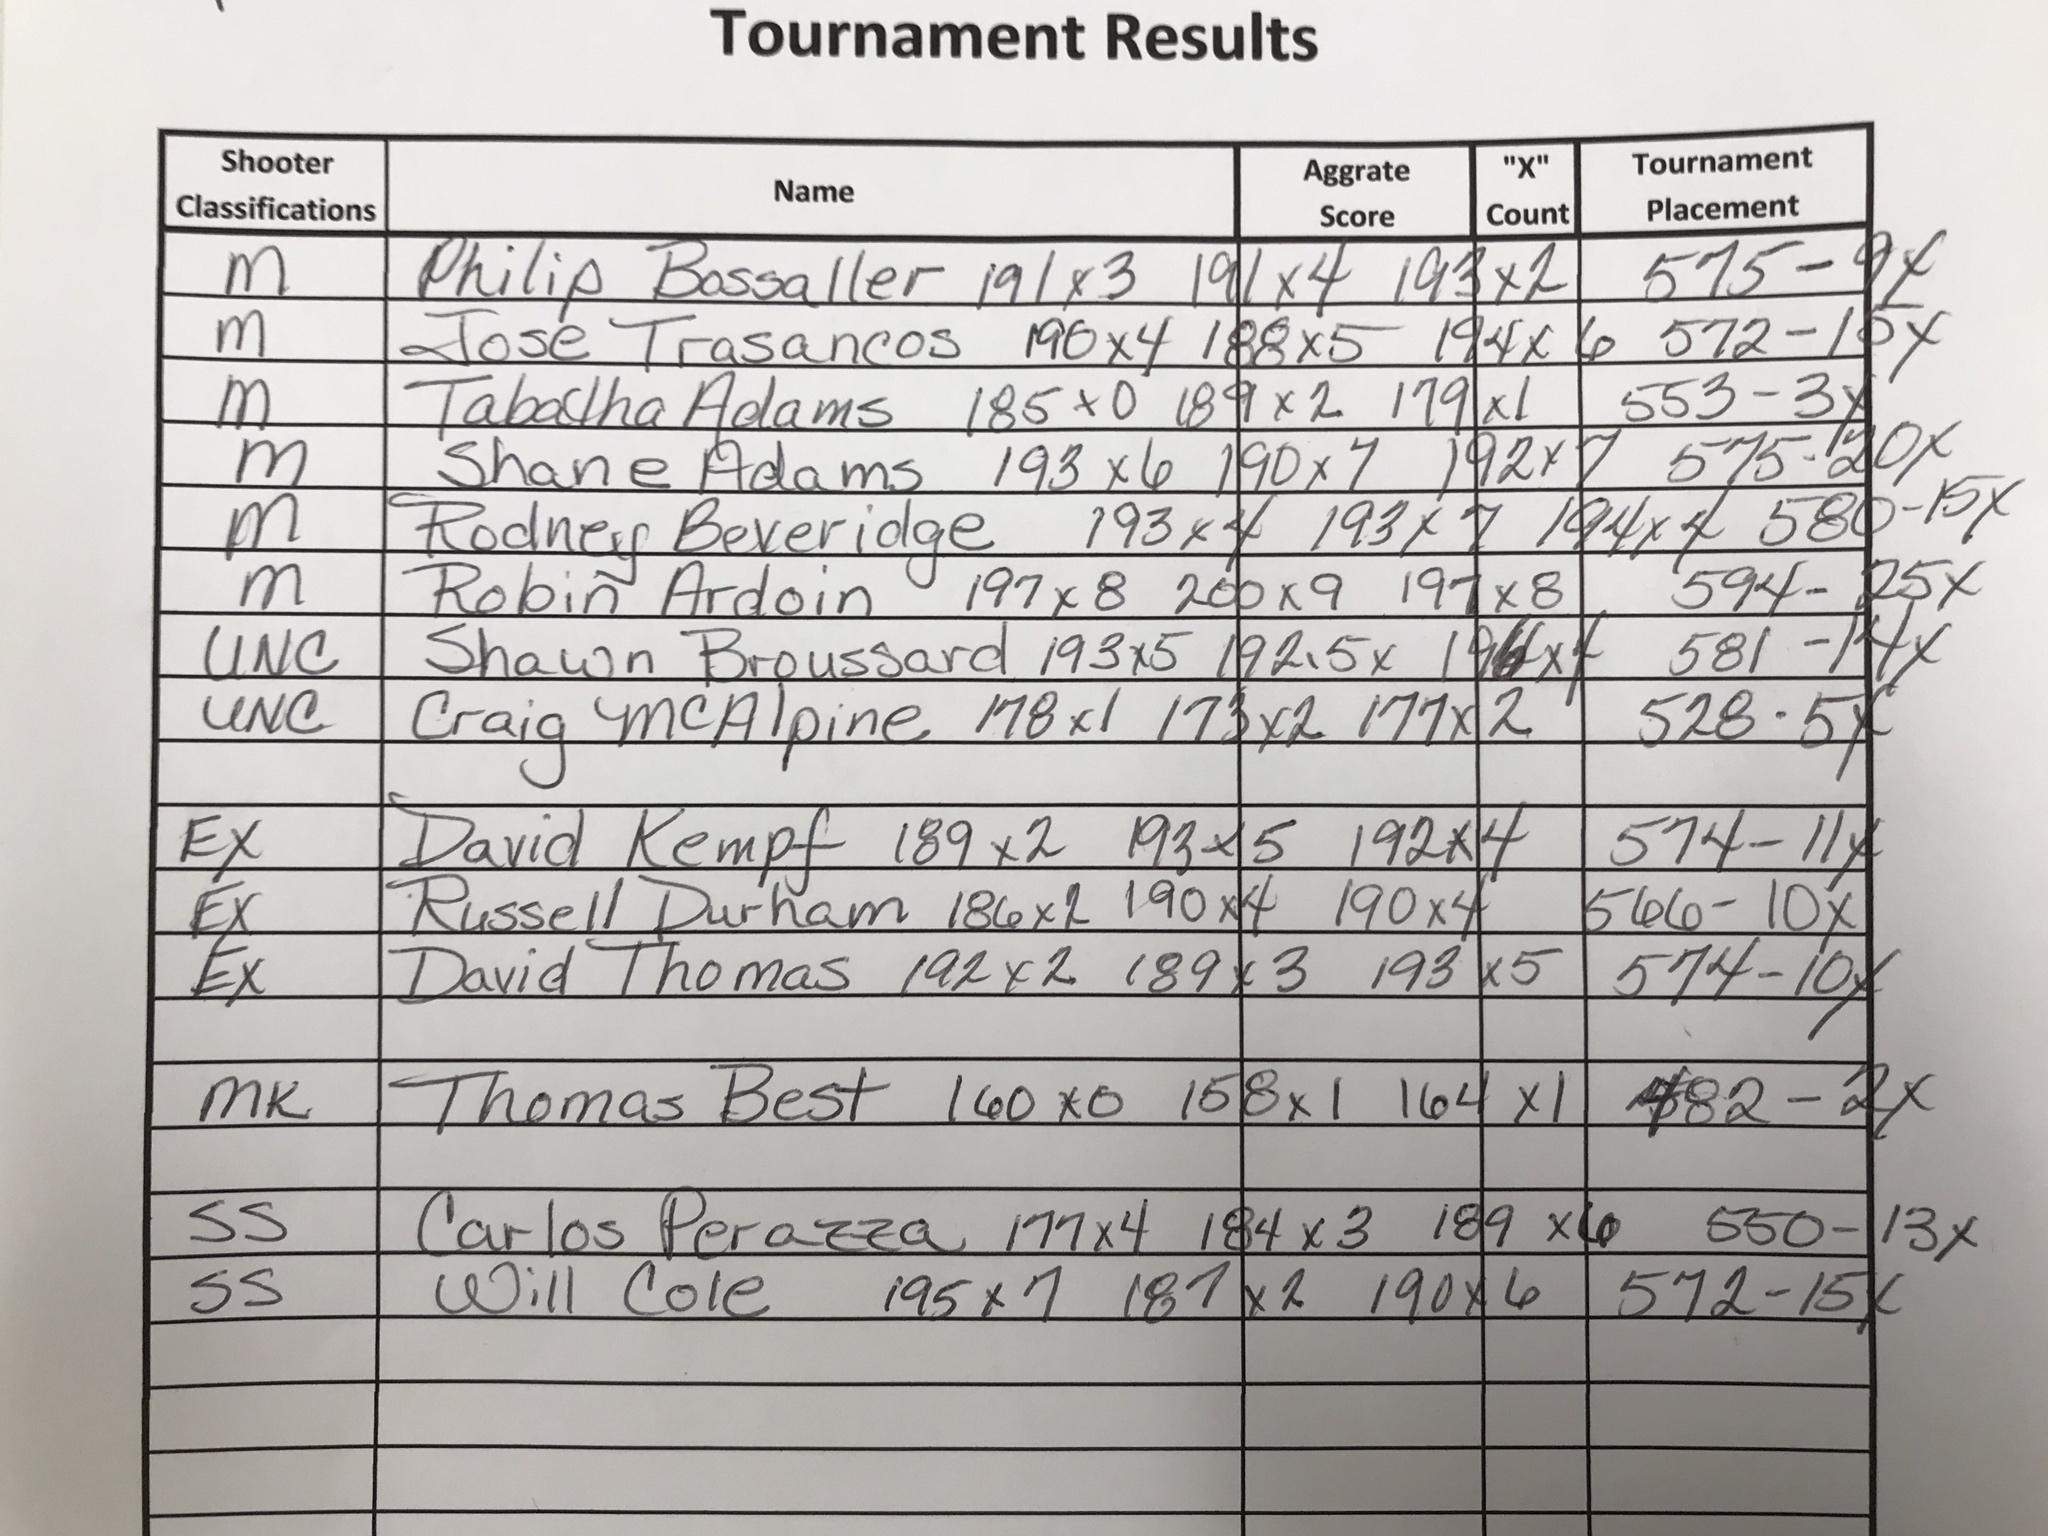 Tournament Results
Shooter Classifications Name Aggrate Score "X" Count Tournament Placement
M Philip Bossaller 191x3 191x4 193x2 575-9x
M Jose Trasancos 190x4 188x5 194x6 572-15x
M Tabatha Adams 185x0 189x2 179x1 553-3x
M Shane Adams 193x6 190x7 192x7 575-20x
M Rodney Beveridge 193x4 193x7 194x4 580-15x
M Robin Ardoin 197x8 200x9 197x8 594-25x
UNC Shawn Broussard 193x5 192.5x 196x4 581-14x
UNC Craig McAlpine 178x1 173x2 177x2 528-5x
EX David Kempf 189x2 193x5 192x4 574-11x
EX Russell Durham 186x2 190x4 190x4 566-10x
EX David Thomas 192x2 189x3 193x5 574-10x
MK Thomas Best 160x0 158x1 164x1 482-2x
SS Carlos Perazza 177x4 184x3 189x6 550-13x
SS Will Cole 195x7 187x2 190x6 572-15x